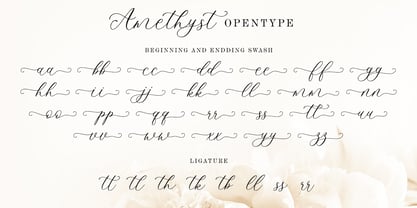 Amethyst OPENTYPE
BEGINNING AND ENDDING SWASH
aa bb cc dd ee ff gg
hh ii jj kk ll mm nn
oo pp qq rr ss tt uu
vv ww xx yy zz
LIGATURE
tt tl th tk tb ll ss rr